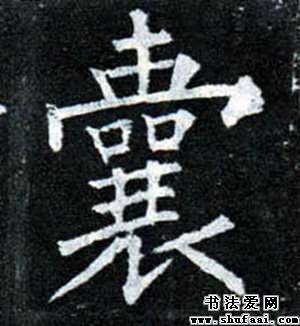 囊
书法爱网
www.shufaai.com